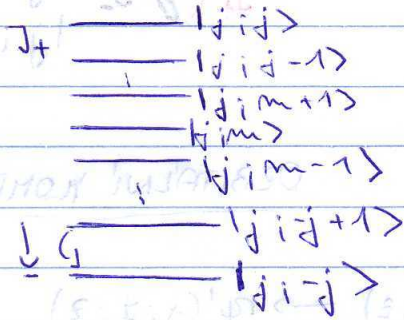 J+ |j;j>
|j;j-1>
|j;m+1>
|j;m>
|j;m-1>
|j;-j+1>
J- |j;-j>